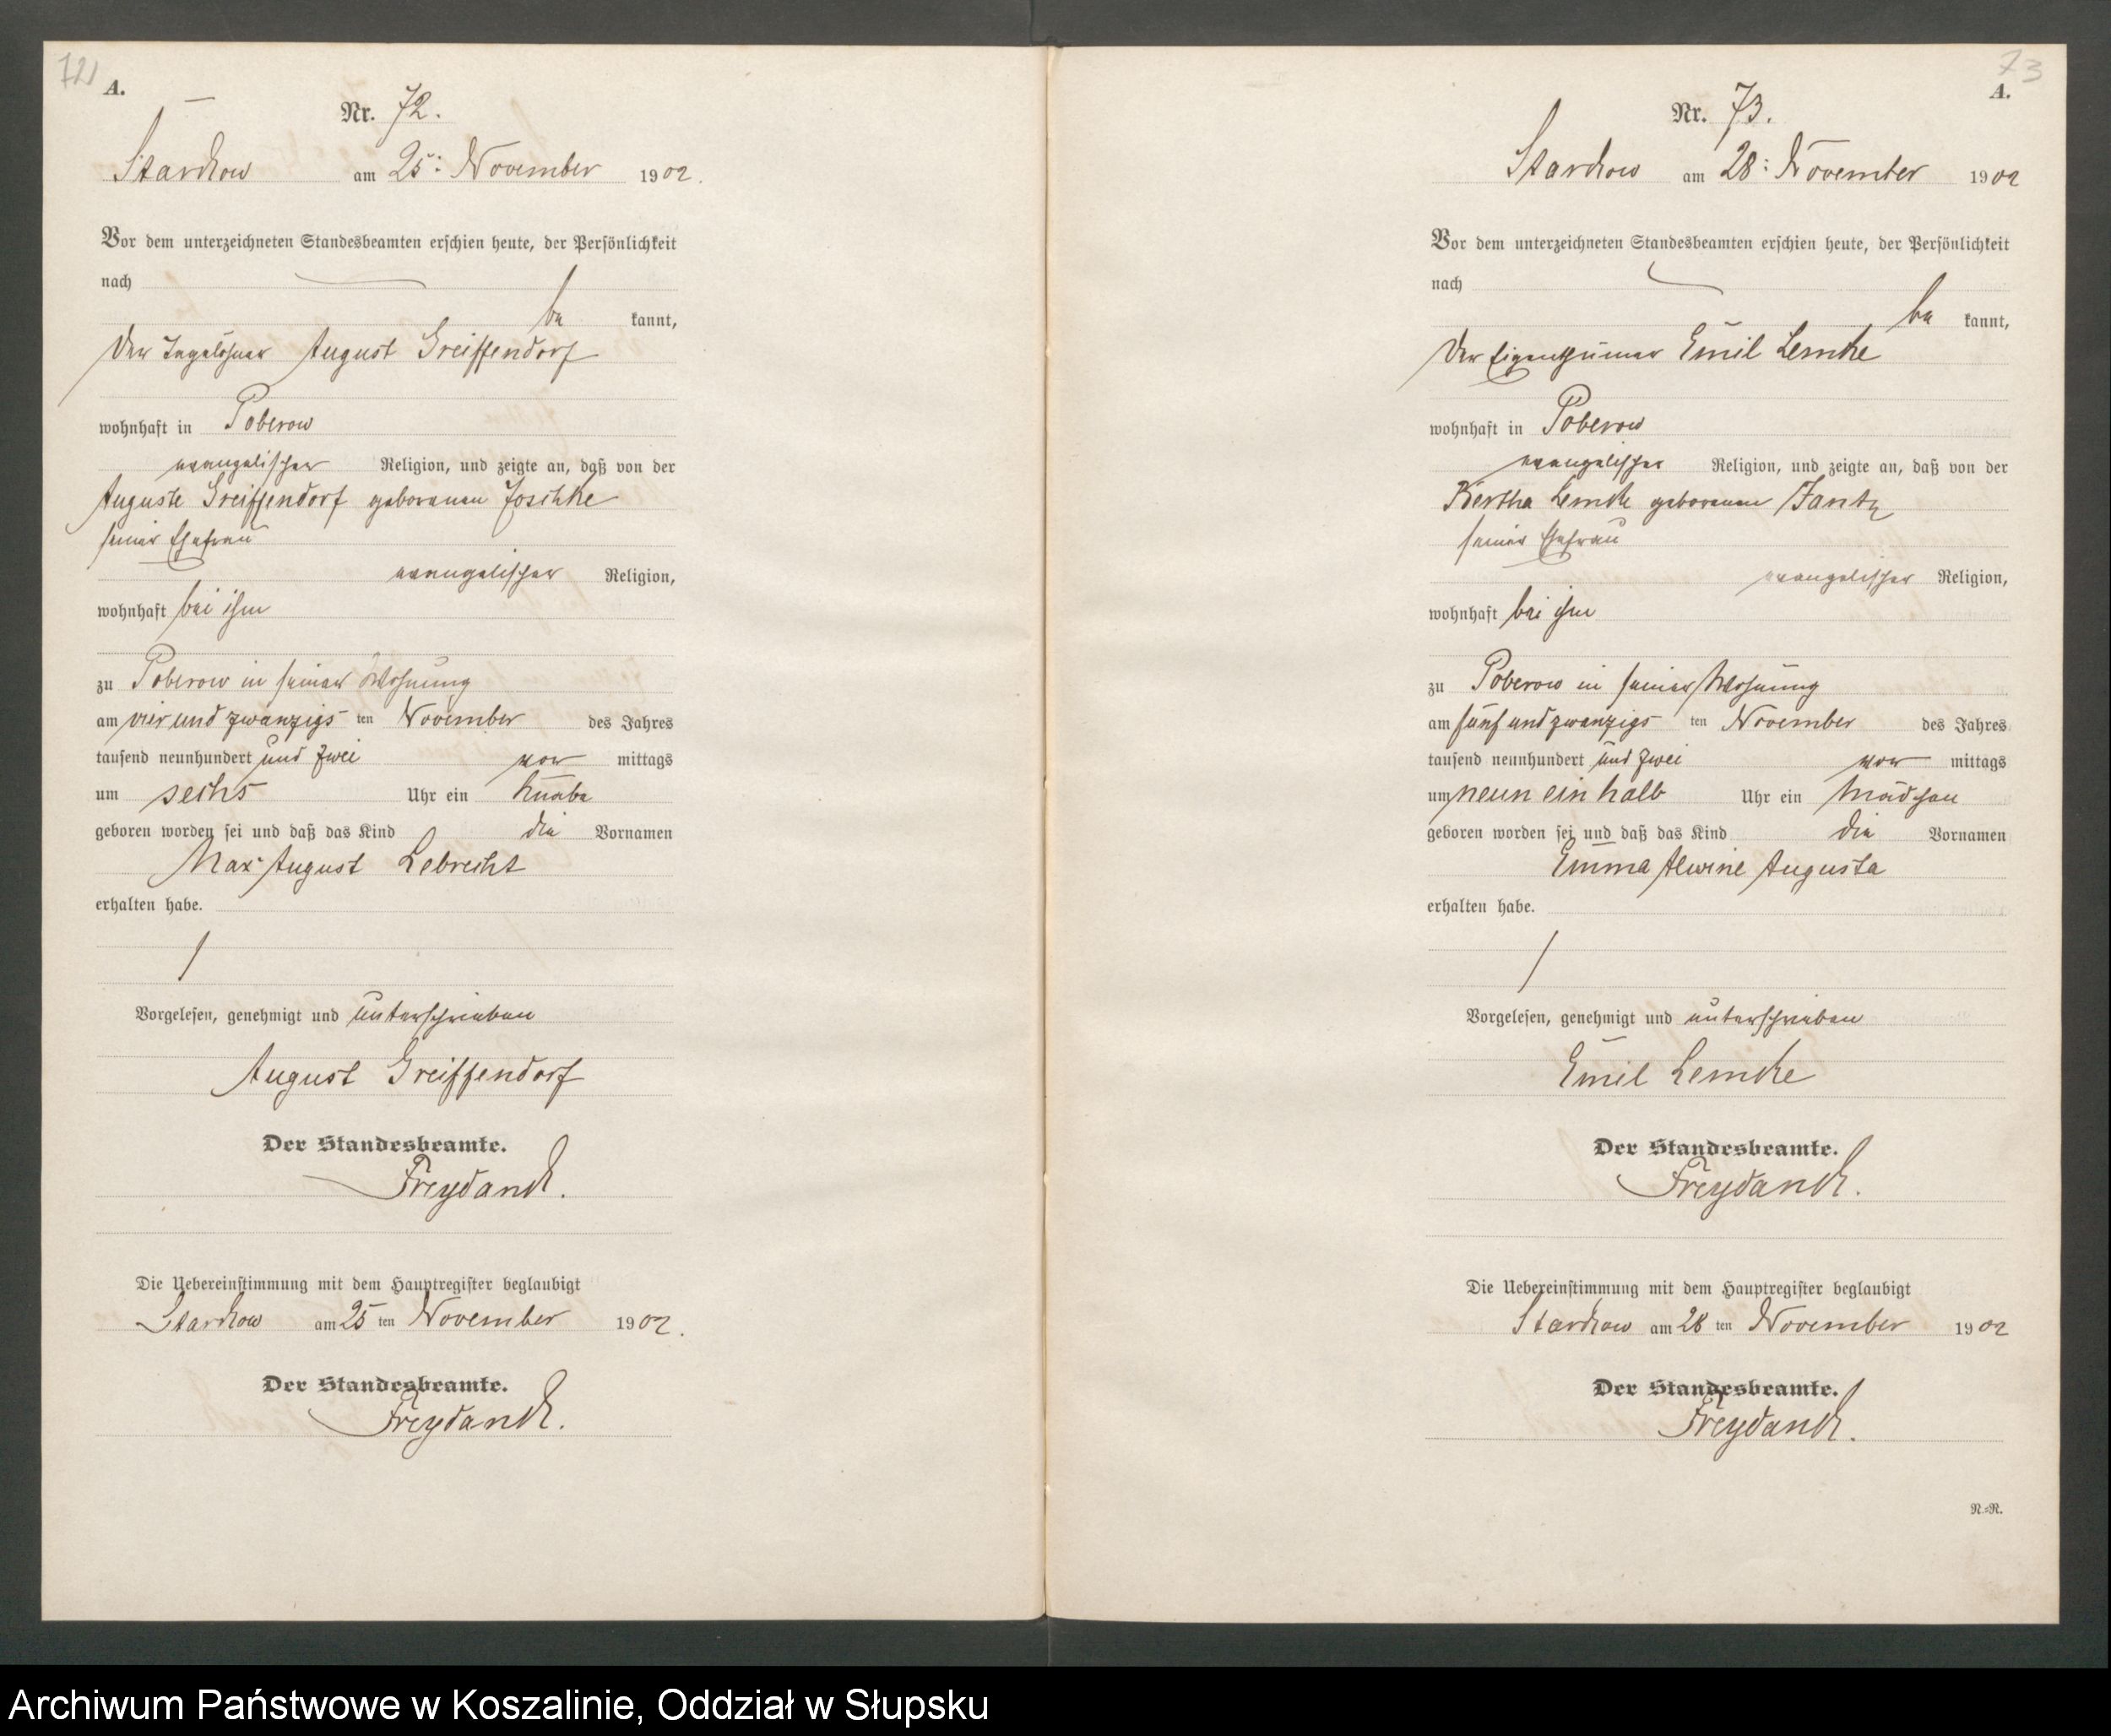 721
A.
Nr. 72.
Starkow am 25: November 1902.
Vor dem unterzeichneten Standesbeamten erschien heute, der Persönlichkeit
nach
be kannt,
Der Tagelöhner August Greiffendorf
wohnhaft in Poberow
evangelischer Religion, und zeigte an, daß von der
Auguste Greiffendorf geborenen Joschke
seiner Ehefrau
evangelischer Religion,
wohnhaft bei ihm
zu Poberow in seiner Wohnung
am vier und zwanzigs ten November des Jahres
tausend neunhundert und zwei vor mittags
um sechs Uhr ein Knabe
geboren worden sei und daß das Kind die Vornamen
Max August Lebrecht
erhalten habe.
Vorgelesen, genehmigt und unterschrieben
August Greiffendorf
Der Standesbeamte.
Freydanck.
Die Uebereinstimmung mit dem Hauptregister beglaubigt
Starkow am 25 ten November 1902.
Der Standesbeamte.
Freydanck.
73
A.
Nr. 73.
Starkow am 28: November 1902
Vor dem unterzeichneten Standesbeamten erschien heute, der Persönlichkeit
nach
be kannt,
Der Eigenthümer Emil Lemcke
wohnhaft in Poberow
evangelischer Religion, und zeigte an, daß von der
Bertha Lemcke geborenen Jantz
seiner Ehefrau
evangelischer Religion,
wohnhaft bei ihm
zu Poberow in seiner Wohnung
am fünf und zwanzigs ten November des Jahres
tausend neunhundert und zwei vor mittags
um neun ein halb Uhr ein Mädchen
geboren worden sei und daß das Kind die Vornamen
Emma Alwine Augusta
erhalten habe.
Vorgelesen, genehmigt und unterschrieben
Emil Lemcke
Der Standesbeamte.
Freydanck.
Die Uebereinstimmung mit dem Hauptregister beglaubigt
Starkow am 28 ten November 1902
Der Standesbeamte.
Freydanck.
N.=N.
Archiwum Państwowe w Koszalinie, Oddział w Słupsku